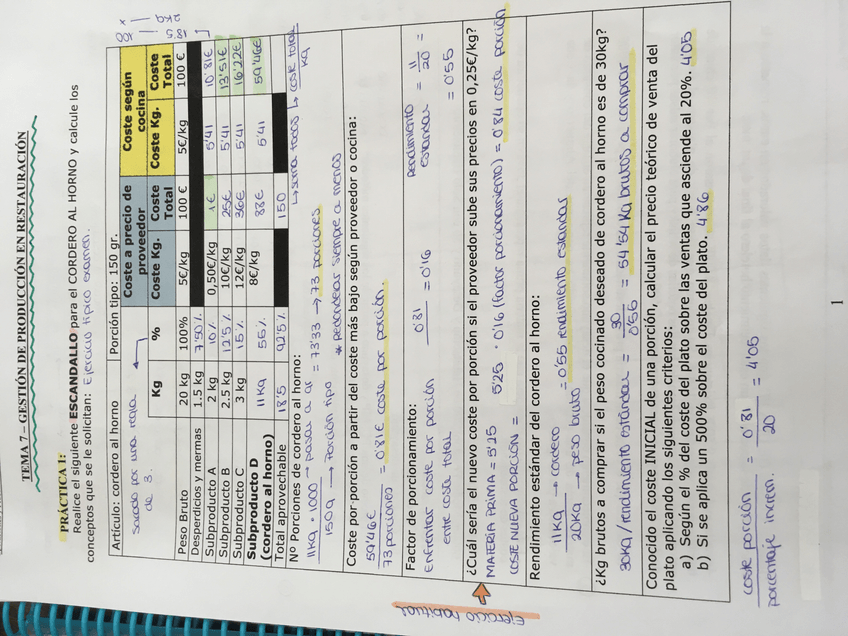 TEMA 7 – GESTIÓN DE PRODUCCIÓN EN RESTAURACIÓN
PRÁCTICA 1:
Realice el siguiente ESCANDALLO para el CORDERO AL HORNO y calcule los
conceptos que se le solicitan: Ejercicio típico examen.
18'5 — 100
2kg — x
Artículo: cordero al horno Porción tipo: 150 gr.
Sacado por una regla
de 3.
Coste a precio de proveedor Coste según cocina
Kg % Coste Kg. Coste Total Coste Kg. Coste Total
Peso Bruto 20 kg 100% 5€/kg 100 € 5€/kg 100 €
Desperdicios y mermas 1.5 kg 7'50%
Subproducto A 2 kg 10% 0,50€/kg 1€ 5'41 10'81€
Subproducto B 2.5 kg 12'5% 10€/kg 25€ 5'41 13'51€
Subproducto C 3 kg 15% 12€/kg 36€ 5'41 16'22€
Subproducto D (cordero al horno) 11Kg 55% 8€/kg 88€ 5'41 59'46€
Total aprovechable 18'5 92'5% 150
Nº Porciones de cordero al horno:
↳ suma todos ↳ coste total
kg
11kg · 1000 → pasar a gr = 73'33 → 73 porciones
150g → Porción tipo * Redondear siempre a menos
Coste por porción a partir del coste más bajo según proveedor o cocina:
59'46€ = 0'81€ coste por porción.
73 porciones
Factor de porcionamiento:
Enfrentar coste por porción 0'81 = 0'16
entre coste total
Rendimiento estandar = 11 =
20
= 0'55
¿Cuál sería el nuevo coste por porción si el proveedor sube sus precios en 0,25€/kg?
MATERIA PRIMA = 5'25
COSTE NUEVA PORCIÓN = 5'25 · 0'16 (factor porcionamiento) = 0'84 coste porción
Ejercicio habitual
Rendimiento estándar del cordero al horno:
11Kg → cordero = 0'55 rendimiento estandar
20Kg → peso bruto
¿Kg brutos a comprar si el peso cocinado deseado de cordero al horno es de 30kg?
30Kg / rendimiento estándar = 30 = 54'54 Kg brutos a comprar
0'55
Conocido el coste INICIAL de una porción, calcular el precio teórico de venta del
plato aplicando los siguientes criterios:
a) Según el % del coste del plato sobre las ventas que asciende al 20%. 4'05
b) Si se aplica un 500% sobre el coste del plato. 4'86
coste porción = 0'81 = 4'05
porcentaje increm. 20
1